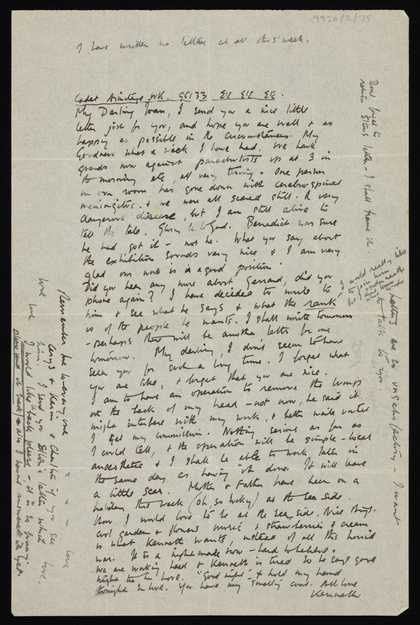 9926/2/75
I have written no letters at all this week.
Cadet Armitage
My Darling Joan, I send you a nice little
letter just for you, and hope you are well & as
happy as possible in the circumstances. My
goodness what a week I have had. We have
guards now against parachutists up at 3 in
the morning etc, all very tiring. One person
in our room has gone down with cerebrospinal
meningitis. & we are all scared still. A very
dangerous disease, but I am still alive to
tell the tale. Benedict was sure
he had got it - not he. What you say about
the exhibition sounds very nice & I am very
glad our work is in a good position.
Did you hear any more about Garrard, did you
phone again? I have decided to write to
him & see what he says & what the rank
is of the people he wants. I shall write tomorrow
- perhaps there will be another letter for me
tomorrow. My darling, I don't seem to have
seen you for such a long time. I forget what
you are like, & forget that you are nice.
I am to have an operation to remove the lumps
at the back of my head - not now, he said it
might interfere with my work, & better wait until
I get my commission. Nothing serious as far as
I could tell, & the operation will be simple - local
anaesthetic & I shall be able to work, later in
the same day as having it done. It will leave
a little scar. Mother & Father have been on a
holiday this week (oh so lucky) at the sea side
How I would love to be at the sea side. Nice things.
cool garden & flowers music & strawberries & cream
is what Kenneth wants, instead of all this horrid
war. It is a nightmare now -
We are working hard & Kenneth is tired so he says good
night to his love. "Good night" & hold my hand
tonight in bed. You have my love. All love
Kenneth
Dont forget to
return letter. I shall
letters are so unsatisfactory - I want
to talk to you.
Remember me to everyone
if you see
him. I send you letter which
I would like back please - it is so funny
please send it back as I havent answered it yet
love
love
love